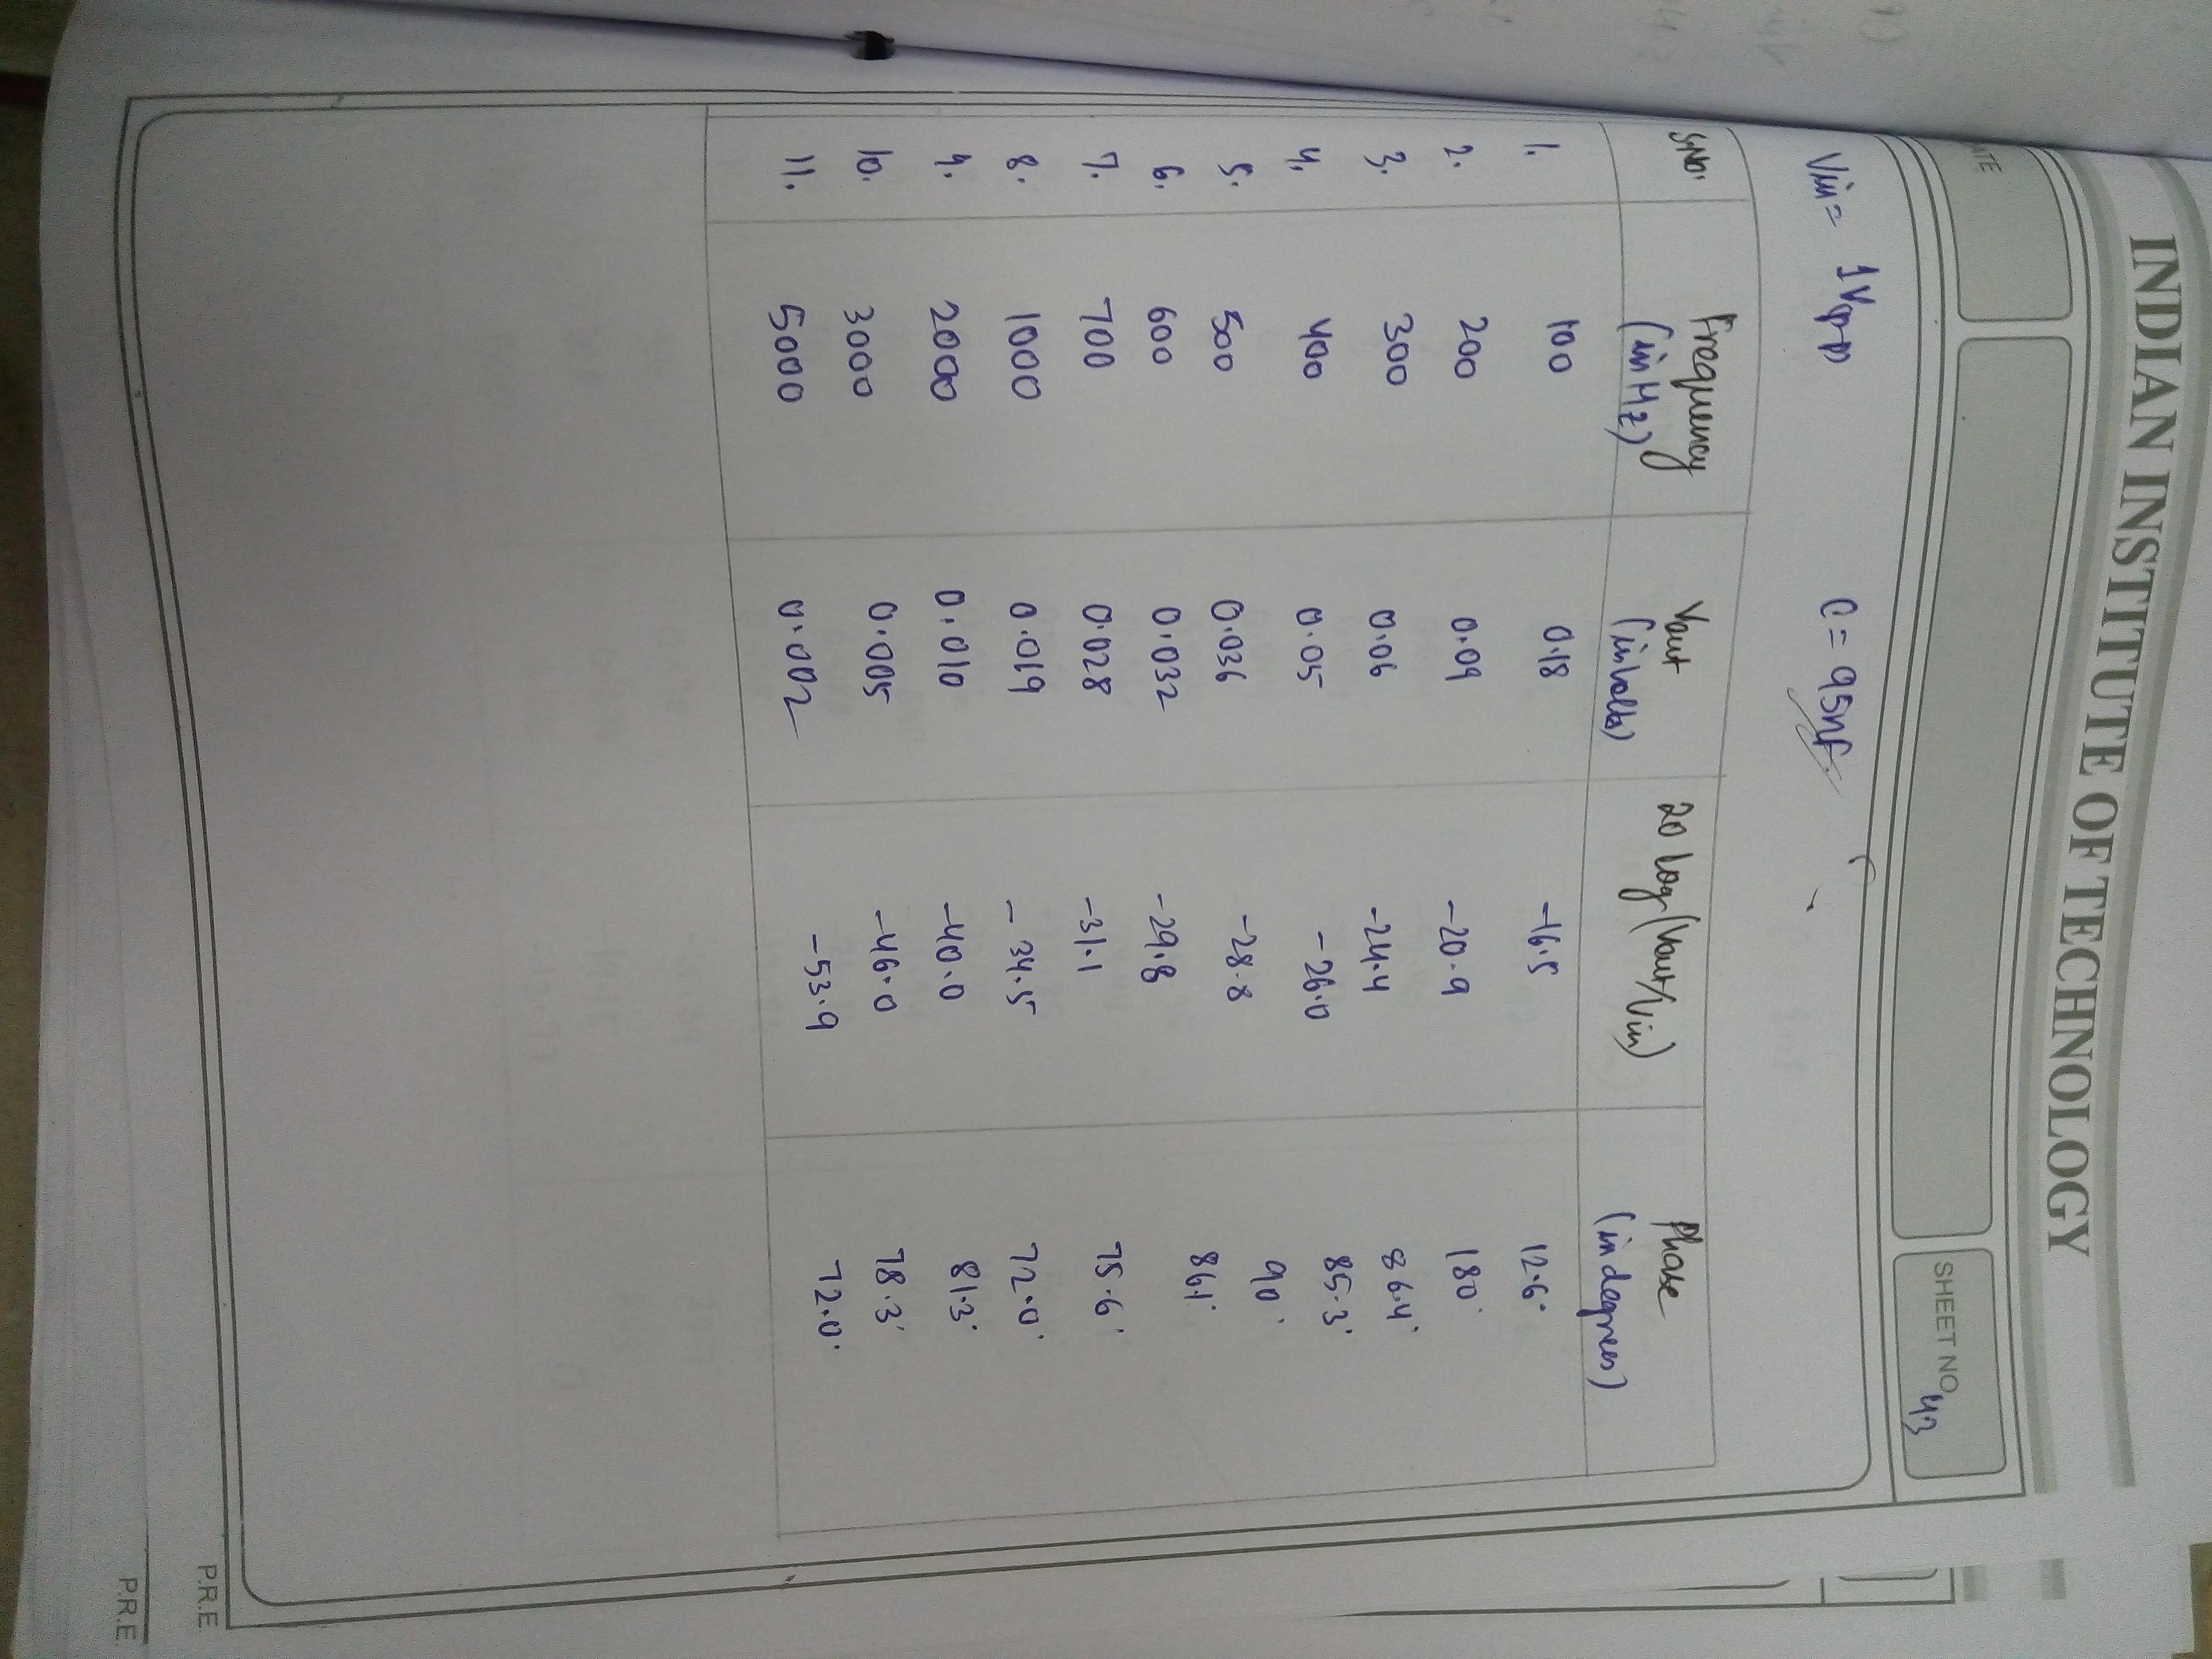 INDIAN INSTITUTE OF TECHNOLOGY
ATE
SHEET NO. 43
Vin = 1V(p-p) C = 95nF
S.No. Frequency (in Hz) Vout (in Volts) 20 log (Vout/Vin) Phase (in degrees)
1. 100 0.18 -16.5 12.6°
2. 200 0.09 -20.9 180°
3. 300 0.06 -24.4 86.4°
4. 400 0.05 -26.0 85.3°
5. 500 0.036 -28.8 90°
6. 600 0.032 -29.8 86.1°
7. 700 0.028 -31.1 75.6°
8. 1000 0.019 -34.5 72.0°
9. 2000 0.010 -40.0 81.3°
10. 3000 0.005 -46.0 78.3°
11. 5000 0.002 -53.9 72.0°
P.R.E.
P.R.E.